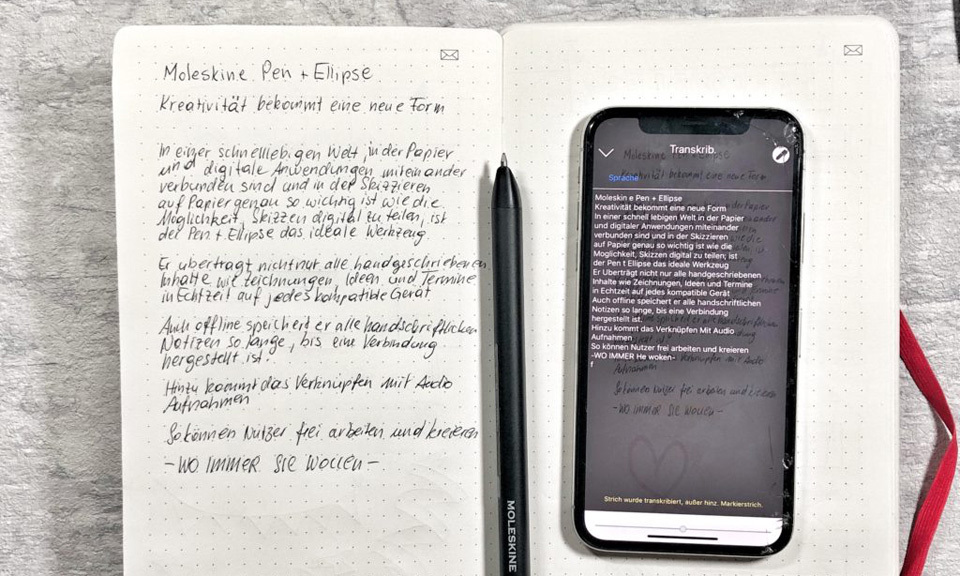 Moleskine Pen + Ellipse
Kreativität bekommt eine neue Form
In einer schnelllebigen Welt, in der Papier
und digitale Anwendungen miteinander
verbunden sind und in der Skizzieren
auf Papier genau so wichtig ist wie die
Möglichkeit, Skizzen digital zu teilen, ist
der Pen + Ellipse das ideale Werkzeug
Er überträgt nicht nur alle handgeschriebenen
Inhalte wie Zeichnungen, Ideen und Termine
in Echtzeit auf jedes kompatible Gerät
Auch offline speichert er alle handschriftlichen
Notizen so lange, bis eine Verbindung
hergestellt ist.
Hinzu kommt das Verknüpfen mit Audio
Aufnahmen
So können Nutzer frei arbeiten und kreieren
- WO IMMER SIE WOLLEN -
MOLESKINE
Transkrib.
Sprache
Moleskin e Pen + Ellipse
Kreativität bekommt eine neue Form
In einer schnell lebigen Welt in der Papier
und digitaler Anwendungen miteinander
verbunden sind und in der Skizzieren
auf Papier genau so wichtig ist wie die
Möglichkeit, Skizzen digital zu teilen; ist
der Pen t Ellipse das ideale Werkzeug
Er Uberträgt nicht nur alle handgeschriebenen
Inhalte wie Zeichnungen, Ideen und Termine
in Echtzeit auf jedes kompatible Gerät
Auch offline speichert er alle handschriftlichen
Notizen so lange, bis eine Verbindung
hergestellt ist.
Hinzu kommt das Verknüpfen Mit Audio
Aufnahmen
So können Nutzer frei arbeiten und kreieren
-WO IMMER He woken-
f
Strich wurde transkribiert, außer hinz. Markierstrich.